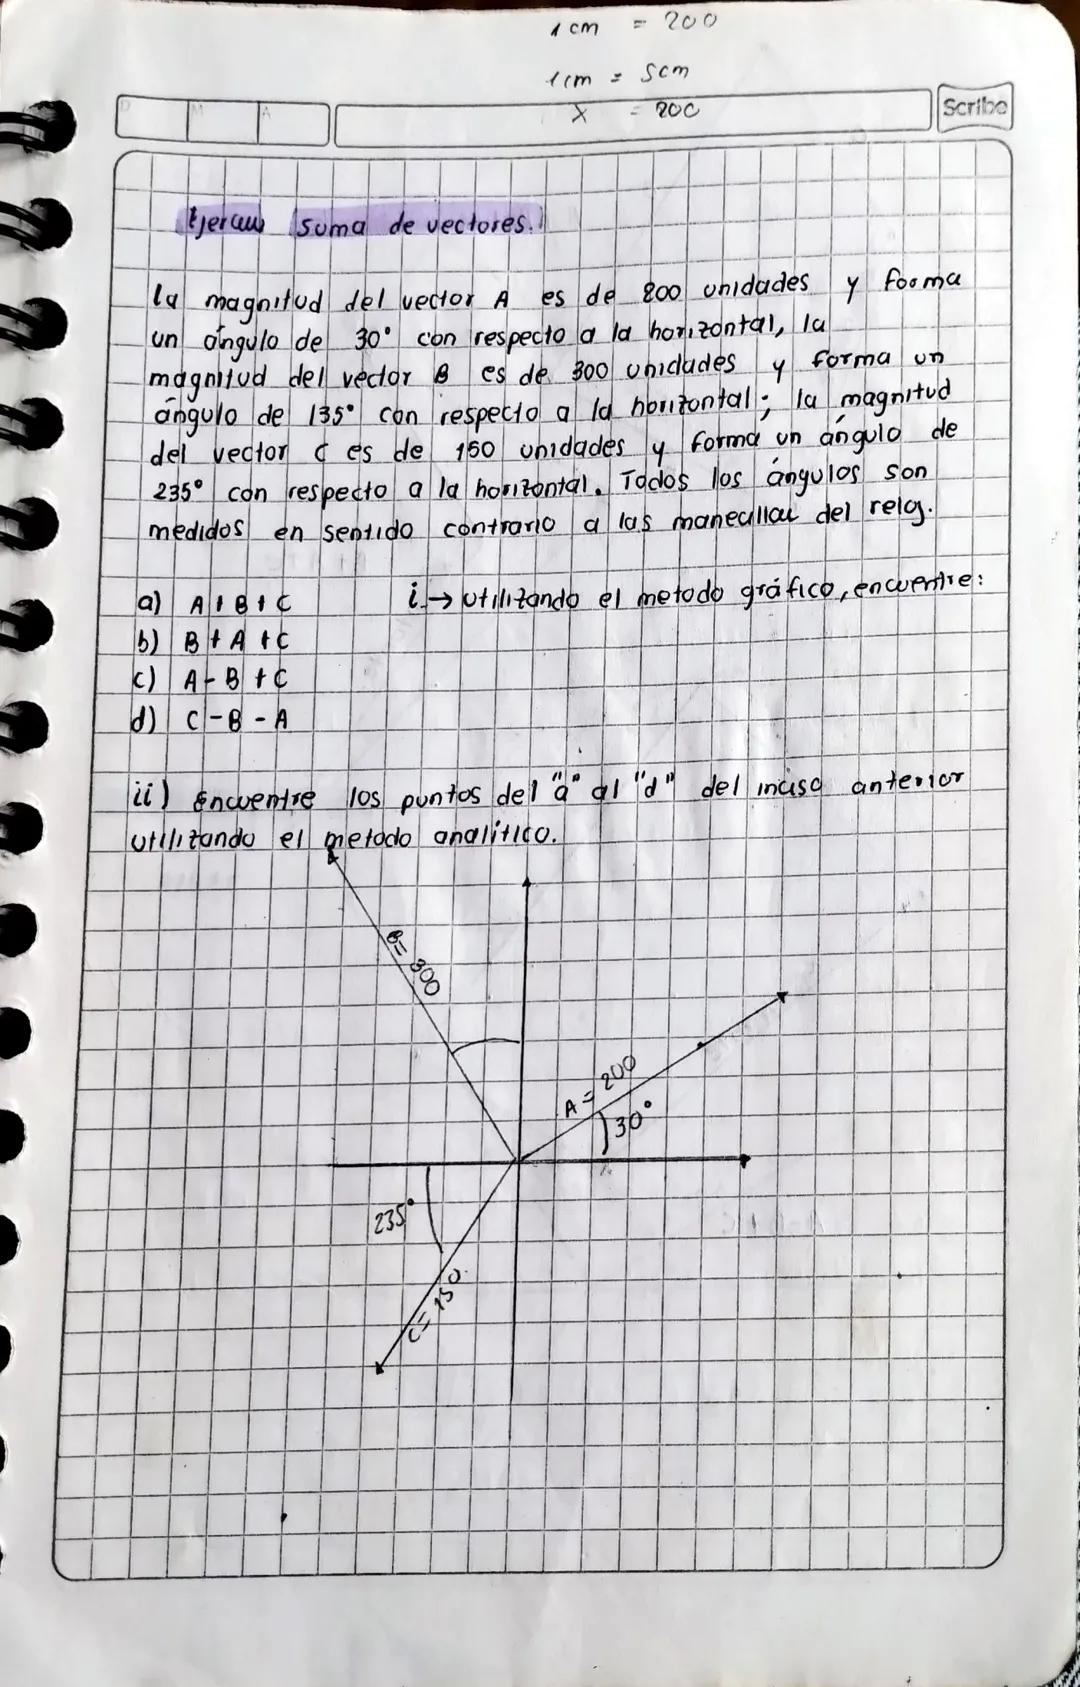 1 cm = 200
1 cm = 5cm
X = 200
D M A
Scribe
suma de vectores.
la magnitud del vector A es de 200 unidades y forma
un ángulo de 30° con respecto a la horizontal, la
magnitud del vector B es de 300 unidades y forma un
ángulo de 135° con respecto a la horizontal; la magnitud
del vector C es de 150 unidades y forma un ángulo de
235° con respecto a la horizontal. Todos los ángulos son
medidos en sentido contrario a las del reloj.
a) A + B + C i.→ utilizando el metodo gráfico, encuentre:
b) B + A + C
c) A - B + C
d) C - B - A
ii) Encuentre los puntos del "a" al "d" del inciso anterior
utilizando el metodo analítico.
B= 300
A = 200
30°
235°
C= 150